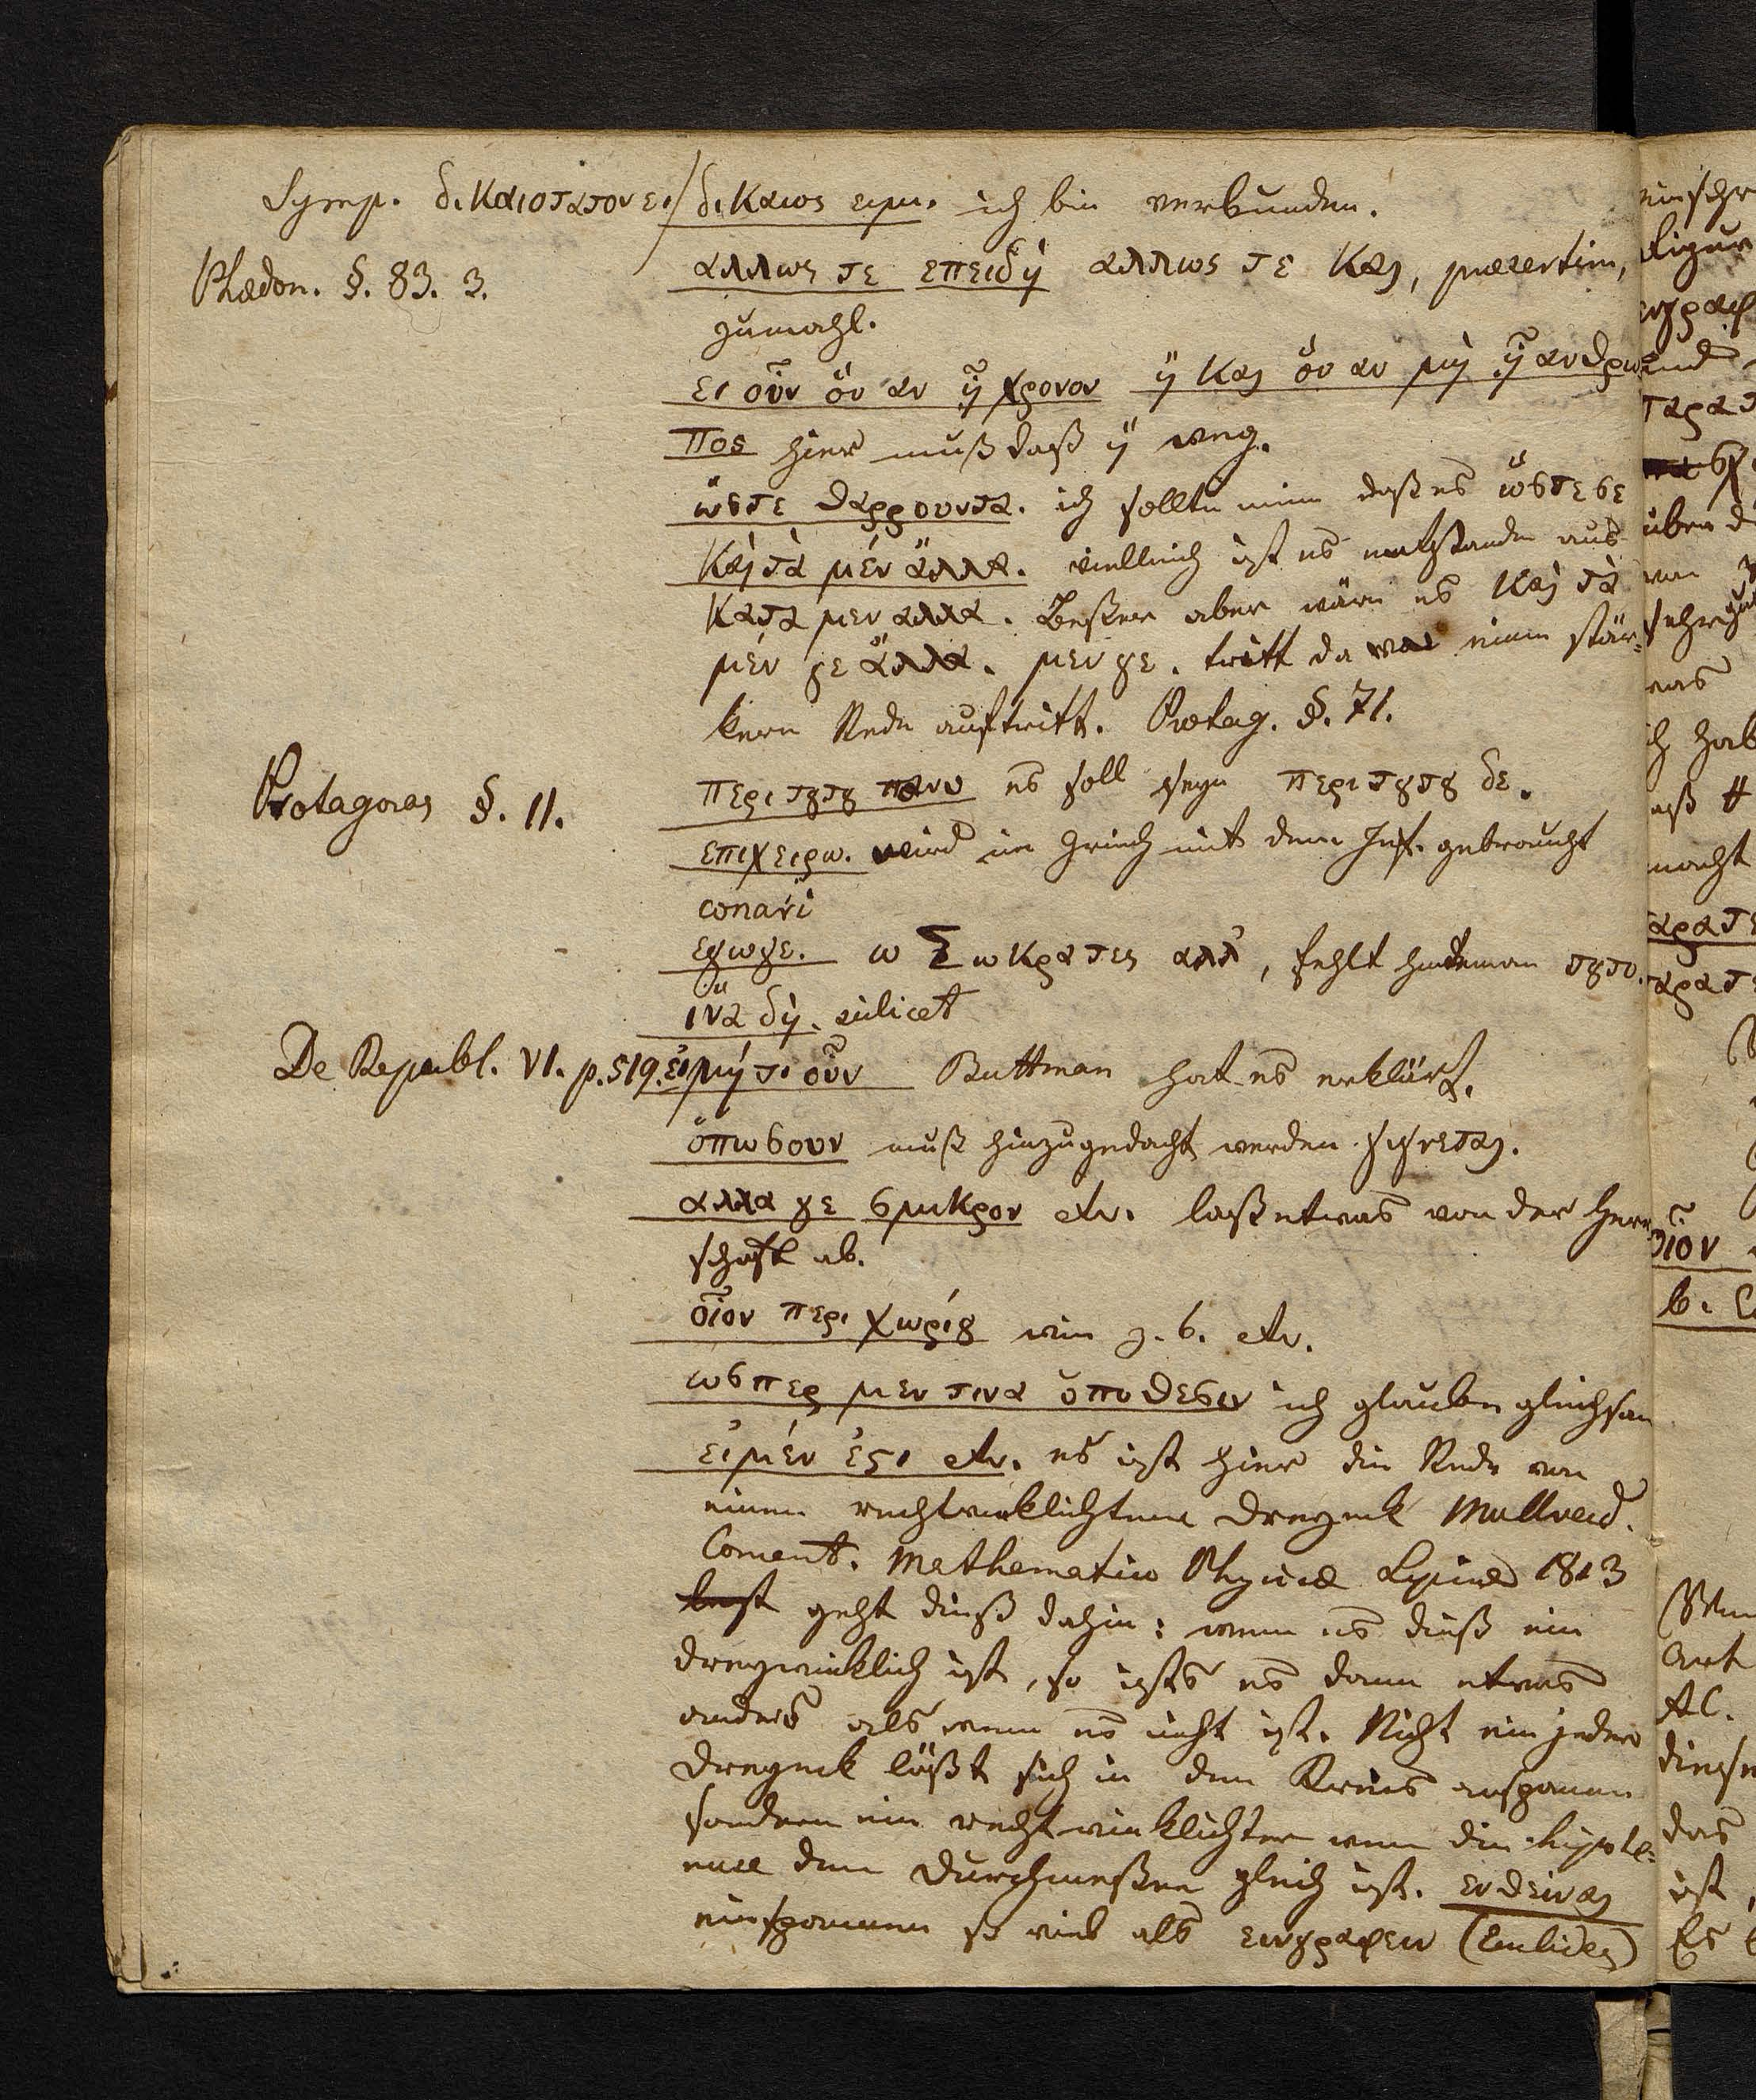 Symp. δικαιοτατον ει / δικαιος ειμι. ich bin verbunden.
Phædon. §. 83. 3. αλλως τε επειδὴ αλλως τε και, præsertim,
zumahl.
ει οὖν ὃν αν ᾖ χρονον ἢ και ὃν αν μὴ ᾖ ανθρω
πος hier muß daß ἢ weg.
ὥστε θαρρουντα. ich sollte meine daß es ὥστε σε
καὶ τὰ μὲν ἄλλα. vielleich ist es entstanden aus
κατα μεν αλλα. Beßer aber wäre es καὶ τὰ
μέν γε ἄλλα. μεν γε. tritt da wo einen stär=
kere Rede auftritt. Protag. §. 71.
Protagoras §. 11. περι τουτου πανυ es soll seyn περι τουτου δε.
επιχειρω. wird im Griech mit dem Inf. gebraucht
conari
εγωγε. ω Σωκρατες αλλ', fehlt τουτο.
ἵνα δὴ. scilicet
De Republ. VI. p. 519. εἰ μή τι οὖν Buttman hat es erklärt.
ὁπωσουν muß hinzugedacht werden γιγνεται.
αλλα γε σμικρον etc. laß etwas von der Herr
schaft ab.
οἷον περι χωρίου wie z. b. etc.
ωσπερ μεν τινα ὑποθεσιν ich glaube gleichsam
εἰ μέν ἐστι etc. es ist hier die Rede von
einem rechtwinklichtem Dreyeck Mollweid.
Coment. Mathematico Physicæ Lipsiæ 1813
geht dieß dahin: wenn es dieß ein
dreywinklich ist, so ists es dann etwas
anders als wenn es nicht ist. Nicht ein jedes
Dreyeck läßt sich in den Kreis einspannen
sondern ein rechtwinklichter wenn die hypote=
nuse dem Durchmeßer gleich ist. ενθειναι
einspannen so viel als ενγραφειν (Euclides)